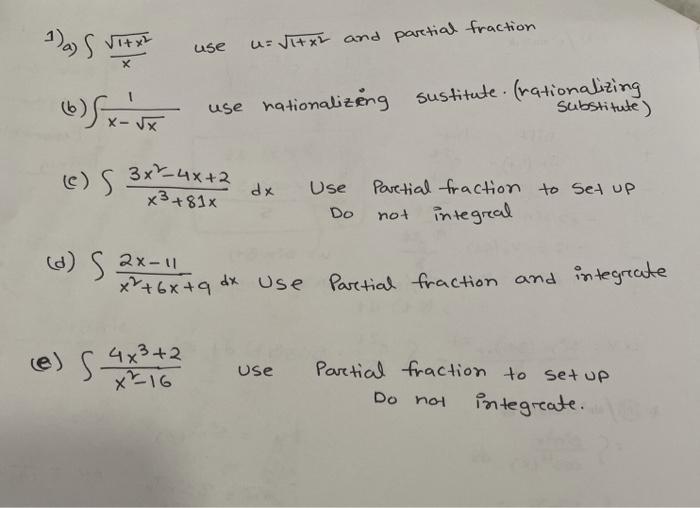 1) a) ∫ √(1+x²) / x use u = √1+x² and partial fraction
(b) ∫ 1 / (x - √x) use rationalizing sustitute. (rationalizing
substitute)
(c) ∫ (3x²-4x+2) / (x³+81x) dx Use Partial fraction to set up
Do not integral
(d) ∫ (2x-11) / (x²+6x+9) dx Use Partial fraction and integrate
(e) ∫ (4x³+2) / (x²-16) use Partial fraction to set up
Do not integreate.